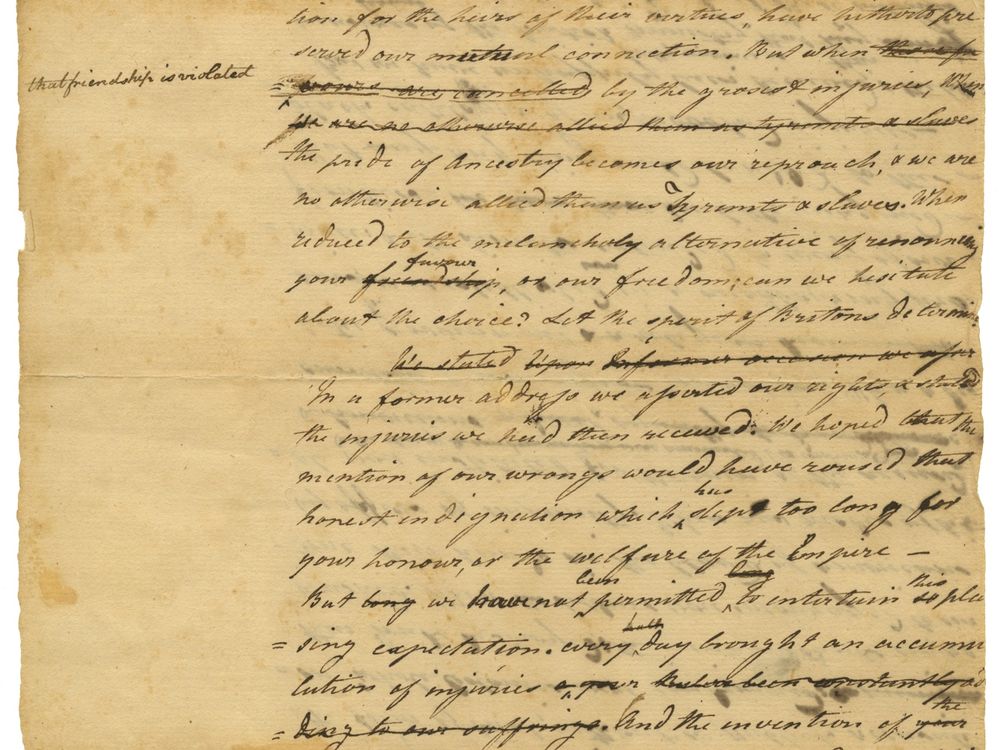 tion for the heirs of their virtues, have hitherto pre
served our mutual connection. But when these fa
that friendship is violated
= vours are cancelled by the grossest injuries, When
we are no otherwise allied than as tyrants & slaves
the pride of Ancestry becomes our reproach, & we are
no otherwise allied than as Tyrants & slaves. When
reduced to the melancholy alternative of renouncing
favour
your friendship, or our freedom; can we hesitate
about the choice? Let the spirit of Britons determine
We stated upon In former occasion we
In a former address we asserted our rights, & stated
the injuries we had then received. We hoped that the
mention of our wrongs would have roused that
has
honest indignation which slept too long for
your honour, or the welfare of the Empire —
been long this
But long we have not permitted to entertain so plea
hath
= sing expectation. every day brought an accumu
lation of injuries been constantly ad
the
= ding to our suffrings. And the invention of your